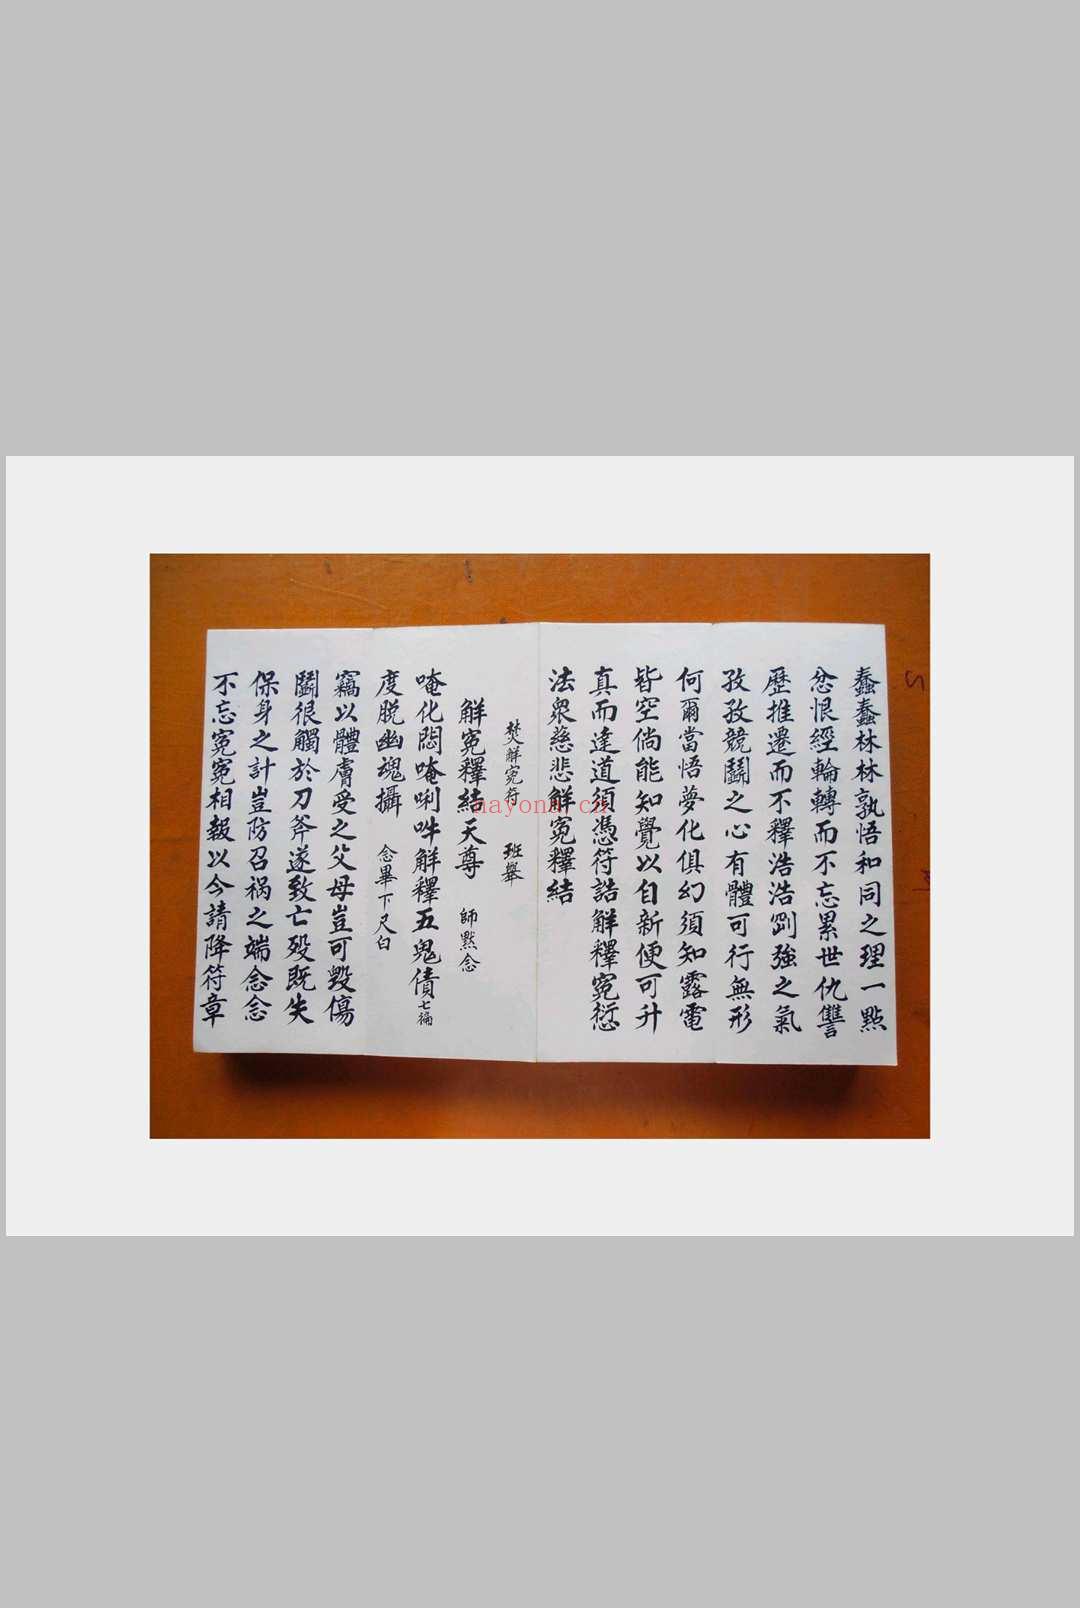 蠢蠢林林孰悟和同之理一點
忿恨經輪轉而不忘累世仇讐
歷推遷而不釋浩浩剛強之氣
孜孜競鬪之心有體可行無形
何爾當悟夢化俱幻須知露電
皆空倘能知覺以自新便可升
真而達道須憑符誥解釋寃愆
法眾慈悲解寃釋結
焚解寃符 班舉
解寃釋結天尊 師黙念
唵化悶唵唎吽解釋五鬼債七徧
度脫幽魂攝 念畢下尺白
竊以體膚受之父母豈可毀傷
鬪很觸於刀斧遂致亡歿既失
保身之計豈防召禍之端念念
不忘寃寃相報以今請降符章
nayona.cn